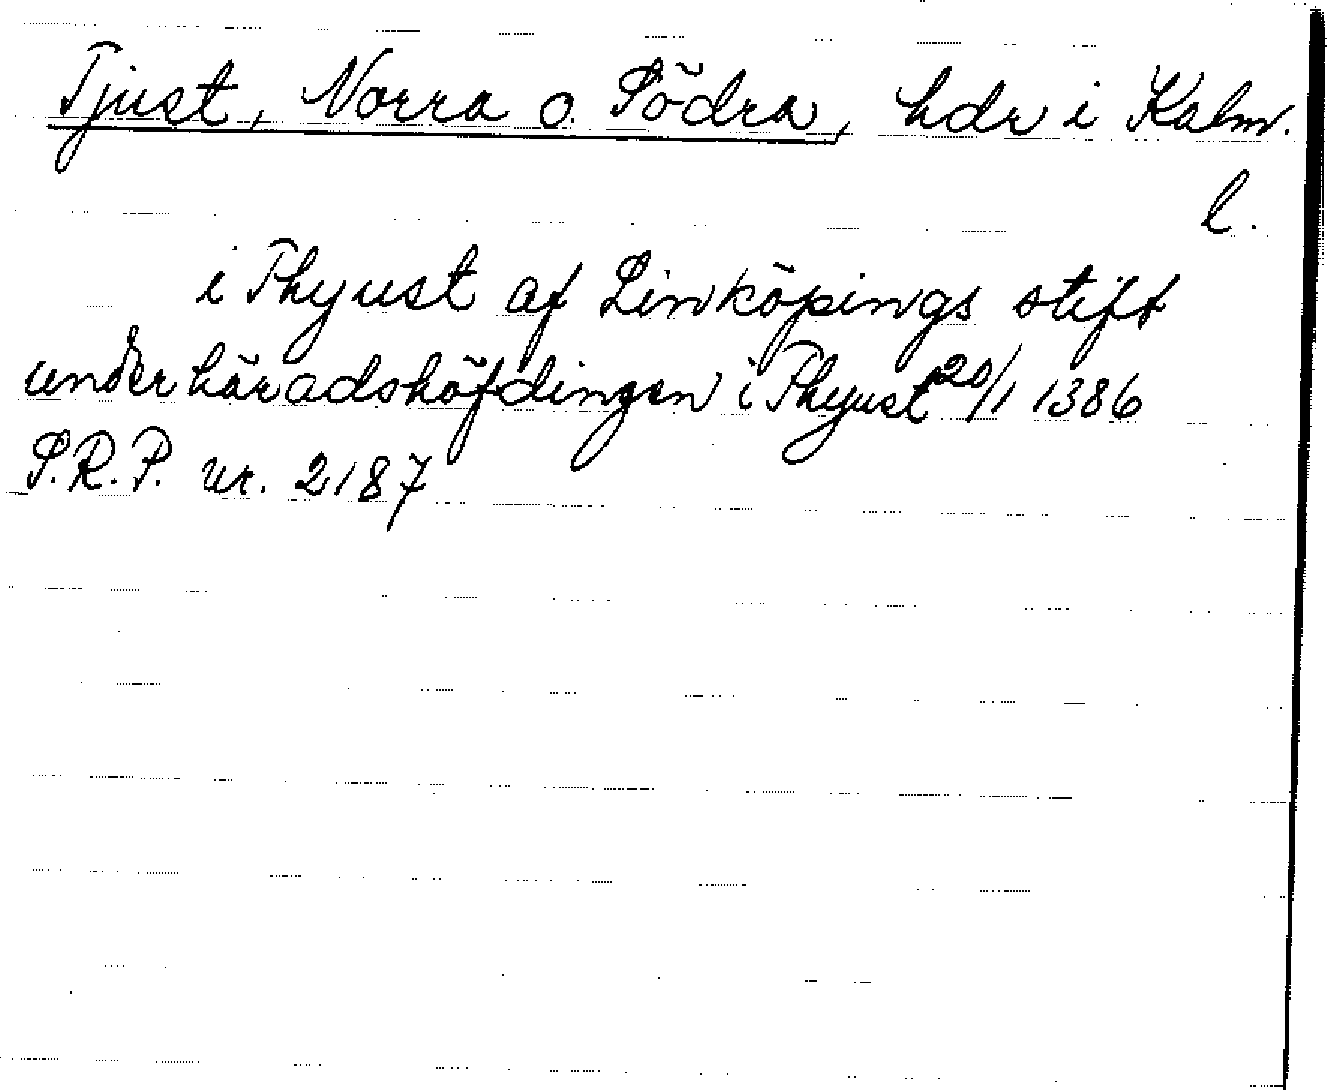 Tjust, Norra o. Södra, hdr i Kalm.
l.
i Thyust af Linköpings stift
under häradshöfdingen i Thyust 20/1 1386
S.R.P. nr. 2187